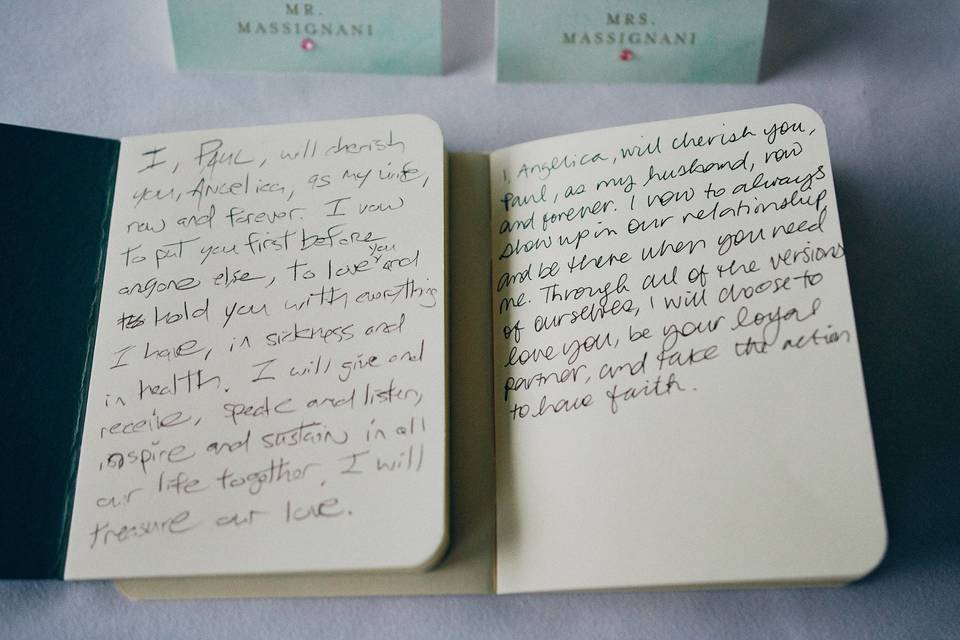 MR.
MASSIGNANI
MRS.
MASSIGNANI
I, PAUL, will cherish
you, Angelica, as my wife,
now and forever. I vow
to put you first before
anyone else, to love you and
hold you with everything
I have, in sickness and
in health. I will give and
receive, speak and listen,
inspire and sustain in all
our life together. I will
treasure our love.
I, Angelica, will cherish you,
Paul, as my husband, now
and forever. I vow to always
show up in our relationship,
and be there when you need
me. Through all of the versions
of ourselves, I will choose to
love you, be your loyal
partner, and take the action
to have faith.